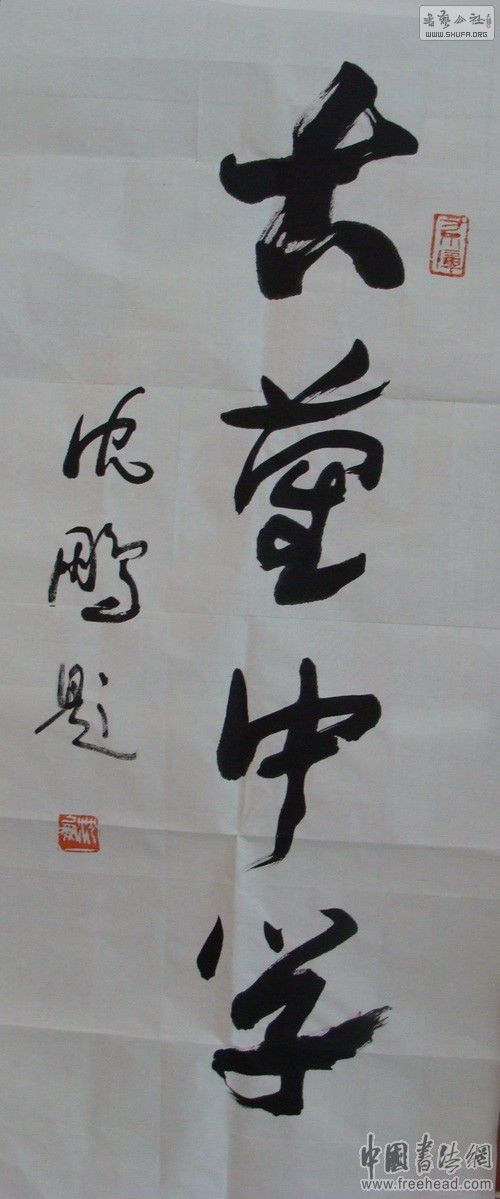 书艺公社
WWW.SHUFA.ORG
古蔺中学
沈鹏题
中國書法網
www.freehead.com